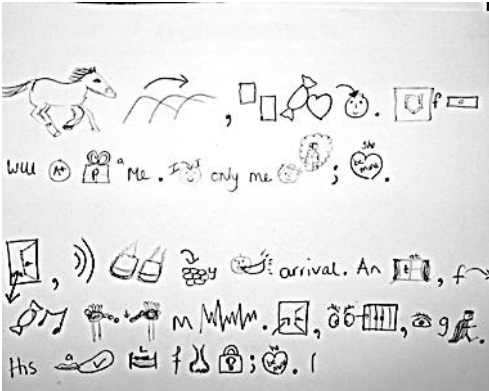 , . f
will A+ P a Me. I only me ; be mine.
, y arrival. An , f
m . , , g .
His f ; .